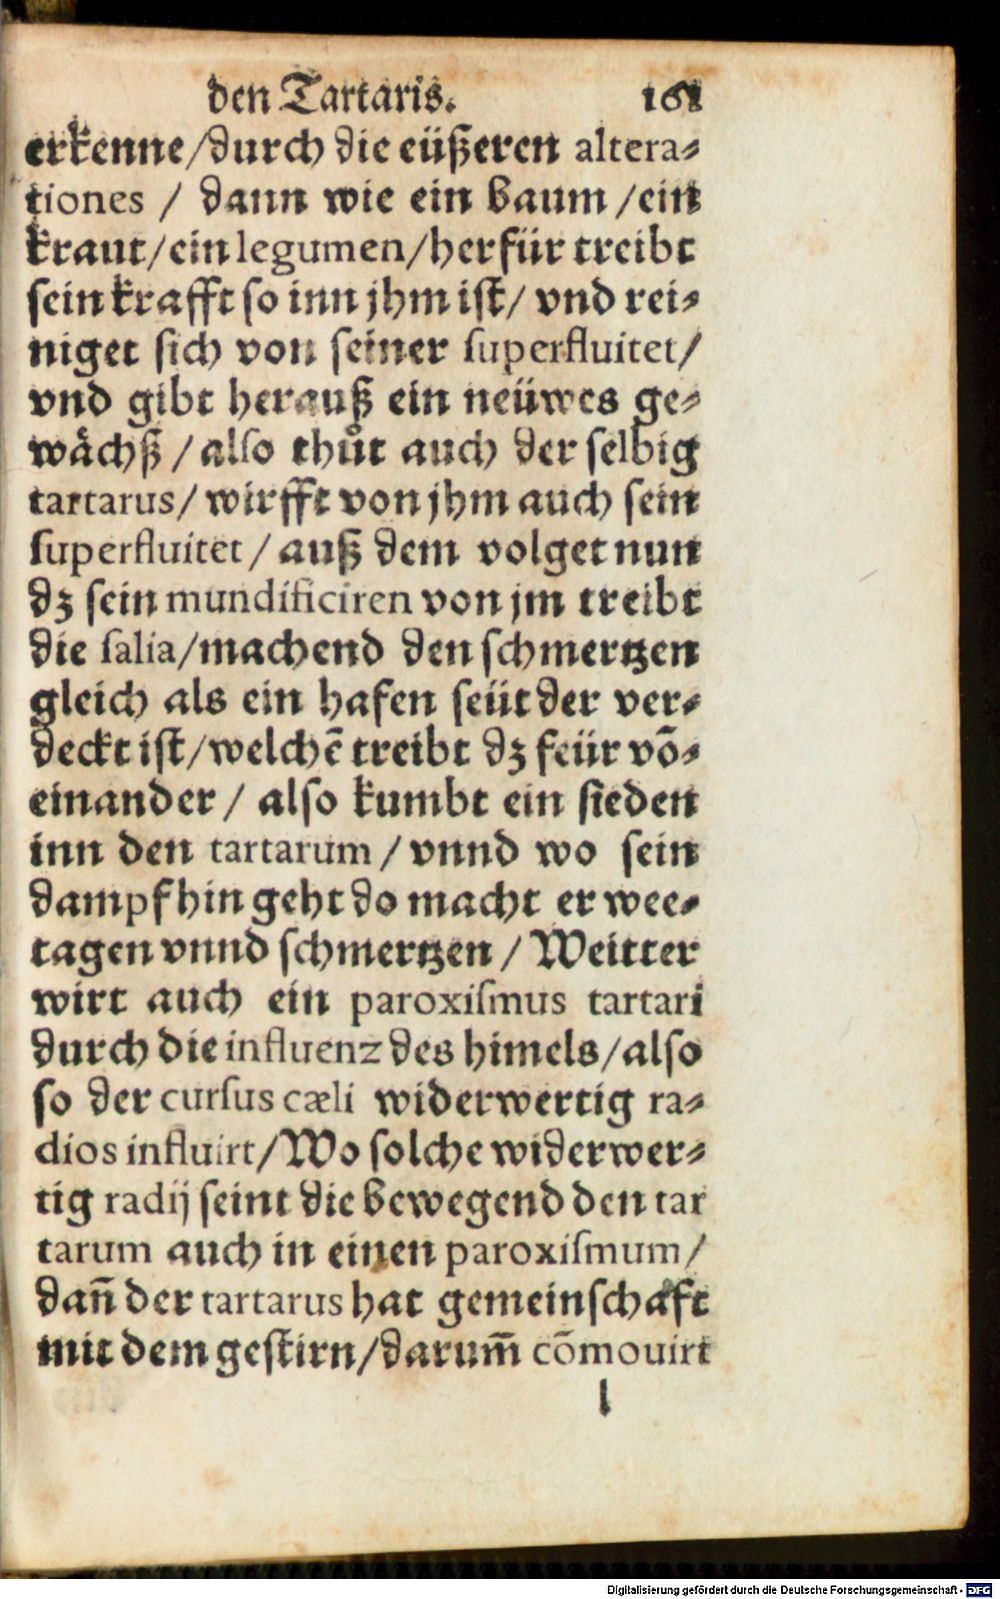 den Tartaris. 161
erkenne/durch die eüßeren altera⸗
tiones / dann wie ein baum /ein
kraut/ein legumen/herfür treibt
sein krafft so inn jhm ist/ vnd rei⸗
niget sich von seiner ſuperfluitet/
vnd gibt herauß ein neüwes ge⸗
wächß /also thůt auch der selbig
tartarus/ wirfft von jhm auch sein
ſuperfluitet / auß dem volget nun
dz sein mundificiren von jm treibt
die ſalia/machend den schmertzen
gleich als ein hafen seüt der ver⸗
deckt ist/welchē treibt dz feür vō⸗
einander / also kumbt ein sieden
inn den tartarum / vnnd wo sein
dampf hin geht do macht er wee⸗
tagen vnnd schmertzen / Weitter
wirt auch ein paroxiſmus tartari
durch die influenz des himels/also
so der curſus cæli widerwertig ra⸗
dios influirt/Wo solche widerwer⸗
tig radij seint die bewegend den tar
tarum auch in einen paroxiſmum/
dañ der tartarus hat gemeinschafft
mit dem gestirn/darum̃ cōmouirt
l
Digitalisierung gefördert durch die Deutsche Forschungsgemeinschaft - DFG